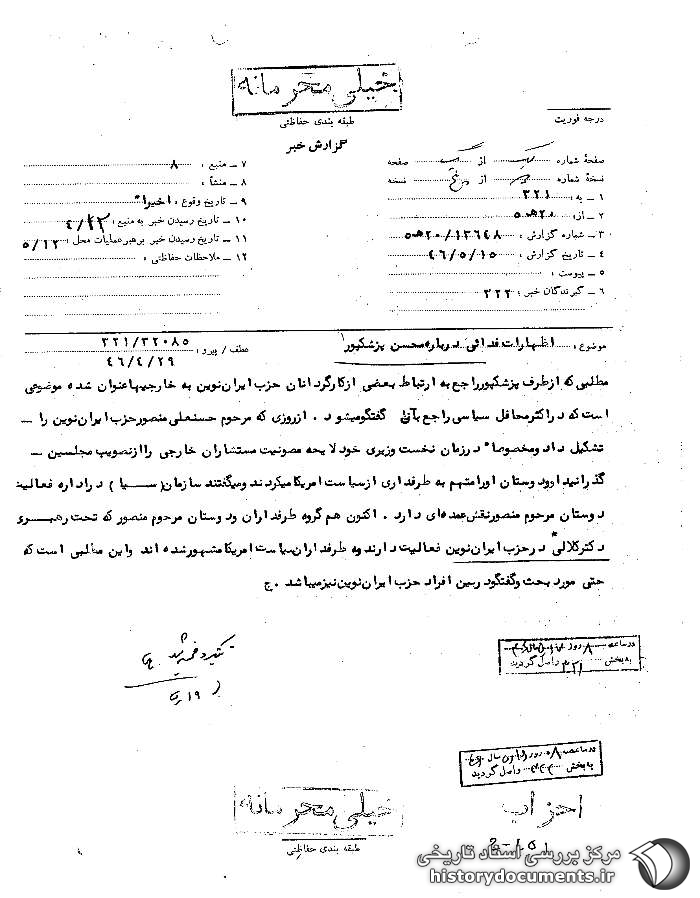 خیلی محرمانه
طبقه بندی حفاظتی
درجه فوریت
گزارش خبر
صفحهٔ شماره یک از یک صفحه
نسخهٔ شماره از پنج نسخه
۱ ـ به : ۳۲۱
۲ ـ از : ۲۰ ه‍ ۵
۳ ـ شماره گزارش : ۵ ه‍ ۲۰/۱۲۶۴۸
۴ ـ تاریخ گزارش : ۴۶/۵/۱۵
۵ ـ پیوست :
۶ ـ گیرندگان خبر : ۳۲۲
۷ ـ منبع : ۸
۸ ـ منشأ :
۹ ـ تاریخ وقوع : اخیرا"
۱۰ ـ تاریخ رسیدن خبر به منبع :
۱۱ ـ تاریخ رسیدن خبر برهبر عملیات محل : ۵/۱۲
۱۲ ـ ملاحظات حفاظتی :
موضوع : اظهارات فدائی درباره محسن پزشکپور
عطف / پیرو : ۳۲۱/۳۲۰۸۵
۴۶/۴/۲۹
مطلبی که ازطرف پزشکپورراجع به ارتباط بعضی ازکارگردانان حزب ایران نوین به خارجیهاعنوان شده موضوعی
است که دراکثرمحافل سیاسی راجع بآن گفتگومیشود . ازروزی که مرحوم حسنعلی منصورحزب ایران نوین را ـ
تشکیل داد ومخصوصا" درزمان نخست وزیری خود لایحه مصونیت مستشاران خارجی راازتصویب مجلسین ـ
گذرانید اوودوستان اورامتهم به طرفداری ازسیاست امریکامیکردند ومیگفتند سازمان( سیا ) دراداره فعالیت
دوستان مرحوم منصورنقش عمده ای دارد . اکنون هم گروه طرفداران ودوستان مرحوم منصور که تحت رهبری
دکترکلالی درحزب ایران نوین فعالیت دارند به طرفداران سیاست امریکامشهورشده اند واین مطلبی است که
حتی مورد بحث وگفتگودربین افراد حزب ایران نوین نیزمیباشد . ج
در ساعت ۸ روز
به بخش ۳۲۱ واصل گردید
در ساعت ۸ روز سال
به بخش واصل گردید
احزاب
خیلی محرمانه
طبقه بندی حفاظتی
مرکز بررسی اسناد تاریخی
historydocuments.ir